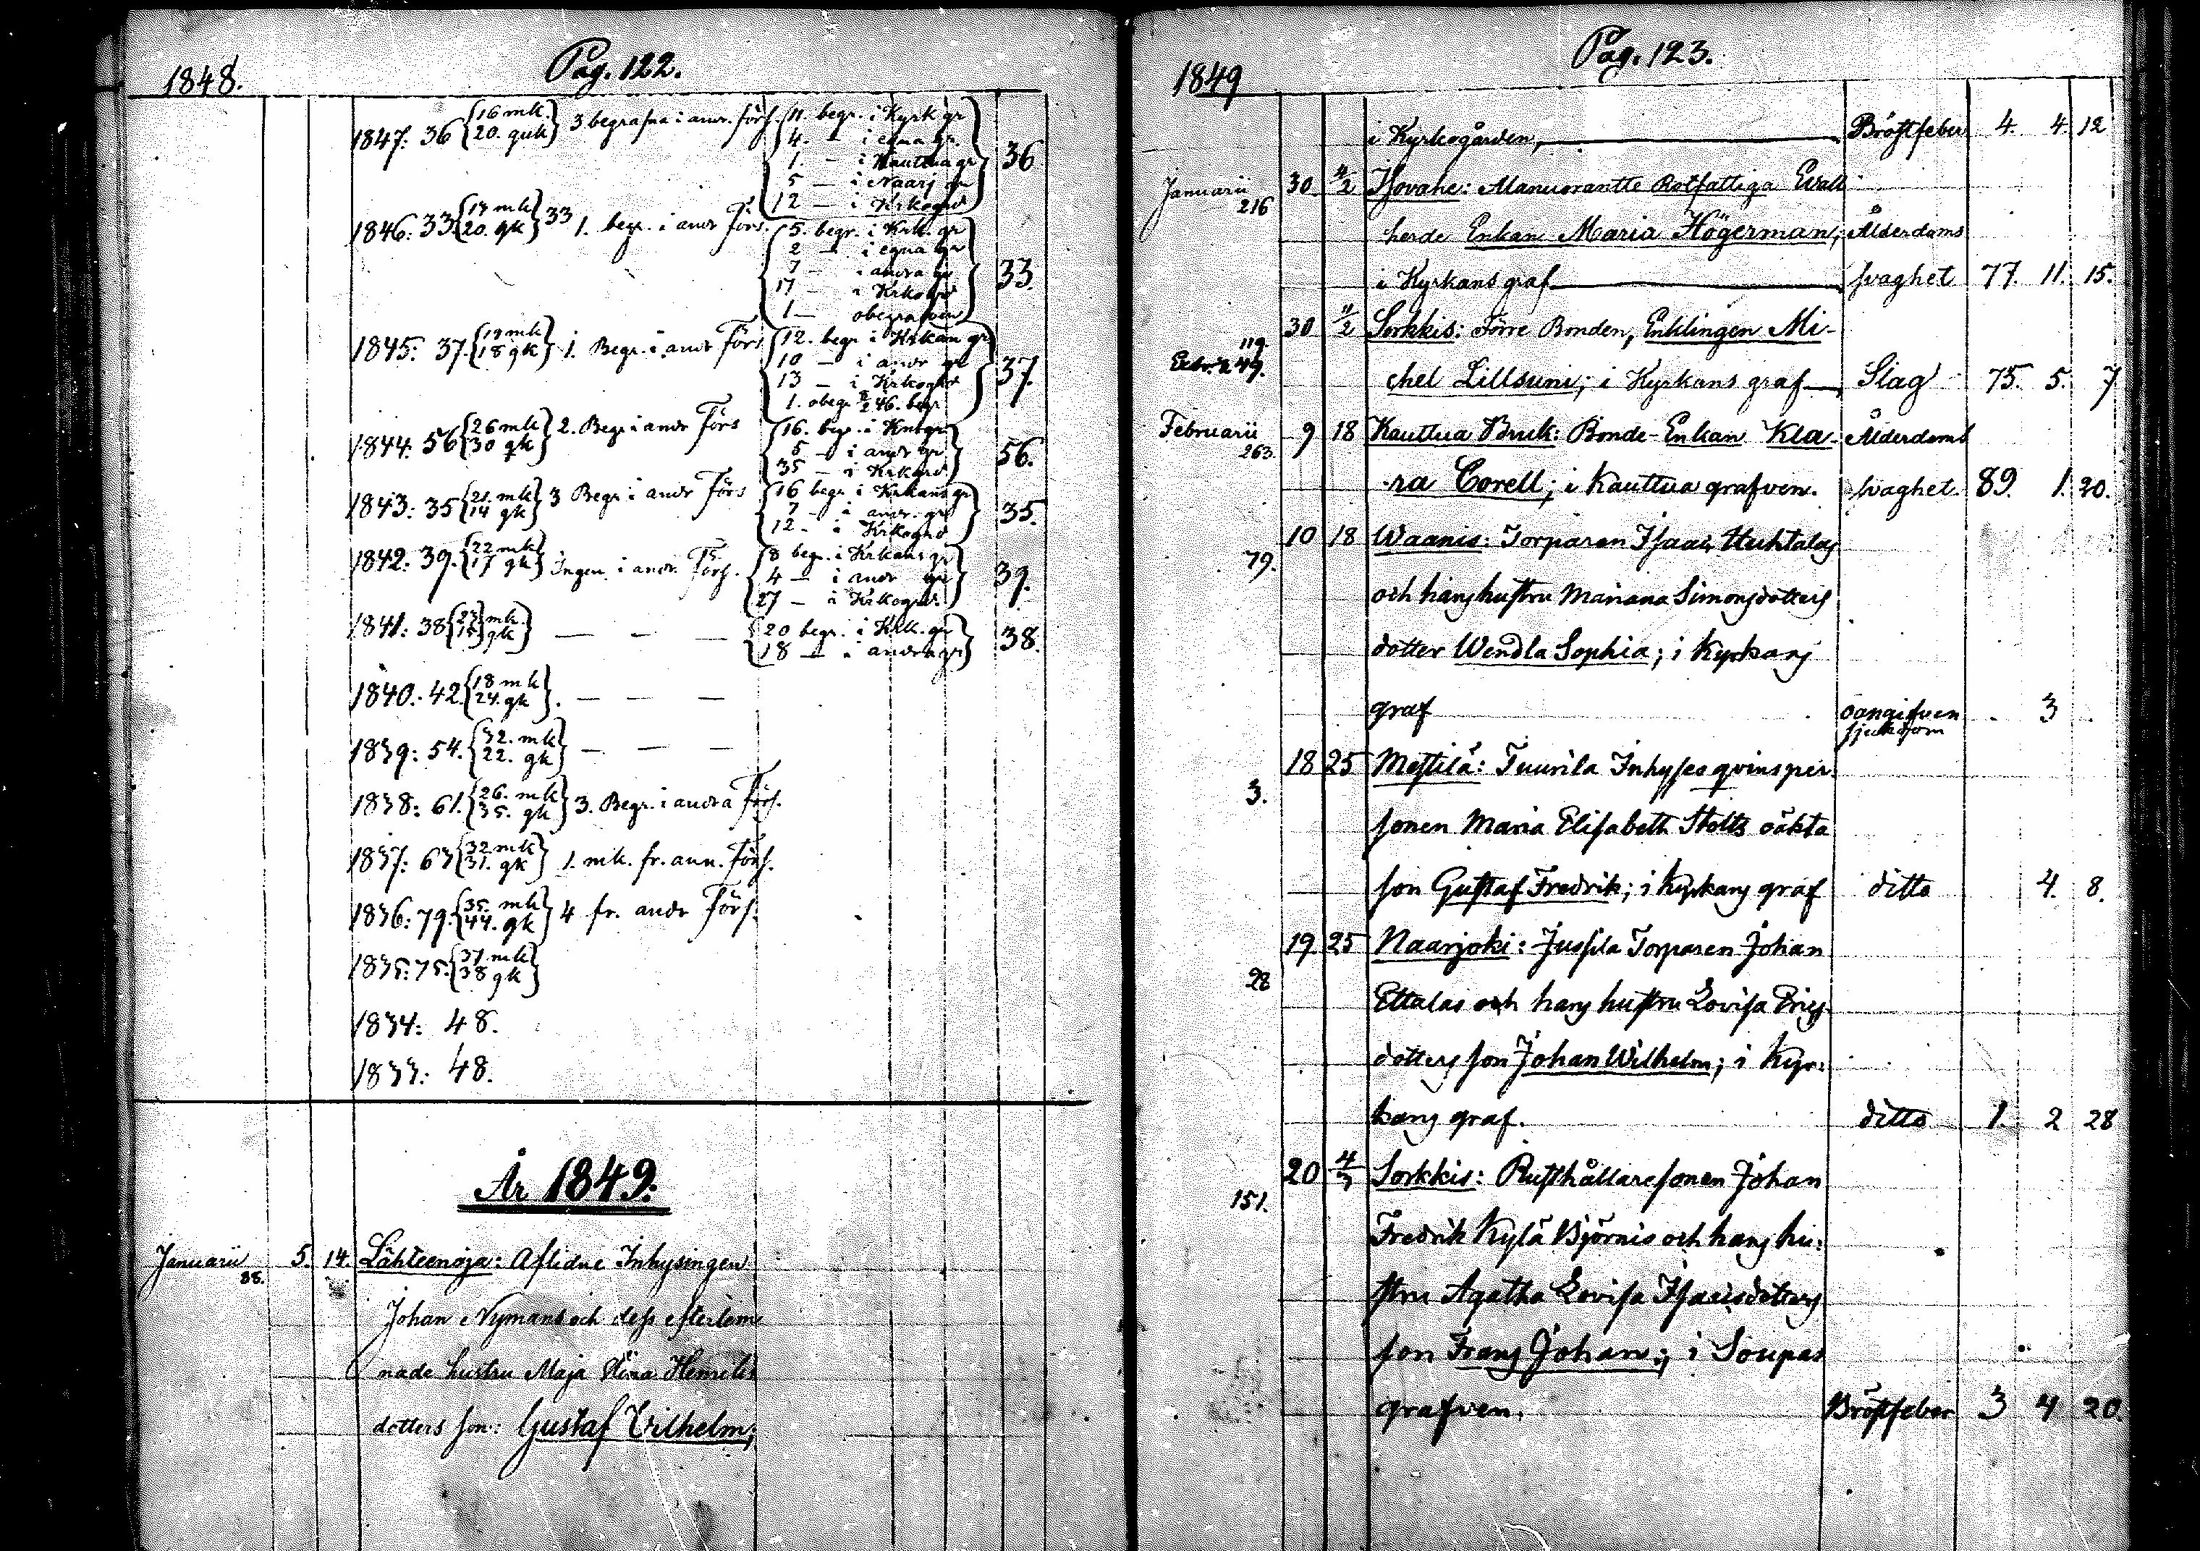 Pag. 122.
1848.
1847: 36 {16 mk. 20. quk} 3 begrafna i andr. förs. {11. begr. i Kyrk gr
4. — i egna gr.
1. — i Kauttua gr
5 — i Naarj gr
12 — i Krkogrd} 36
1846: 33 {13 mk 20. gk} 33 1. begr. i andr Förs. {5. begr. i Krk. gr
2 — i egna gr
7 — i andra gr
17 — i Krkogrd
1 — obegrafven} 33.
1845: 37. {19 mk 18 gk} 1. Begr. i andr Förs {12. begr i Krkan gr
10 — i andr gr
13 — i Krkogrd
1. obegr 46. begr} 37.
1844: 56 {26 mk 30 gk} 2. Begr i andr Förs {16. begr. i Krk gr
5 — i andr gr
35 — i Krkogrd} 56.
1843: 35 {21. mk 14 gk} 3 Begr i andr Förs {16 begr. i Krkans gr
7 — i andr. gr
12 — i Krkogrd} 35.
1842: 39. {22 mk 17 gk} Ingen i andr. Förs. {8 begr. i Krkans gr
4 — i andr gr
27 — i Krkogrd} 39.
1841: 38 {23 mk. 15 gk} — — — {20 begr. i Krk. gr
18 — i andra gr} 38.
1840: 42 {18 mk 24. gk}. — — —
1839: 54. {32. mk 22. gk} — — —
1838: 61. {26. mk 35. gk} 3. Begr. i andra Förs.
1837: 63 {32 mk 31. gk} 1. mk. fr. ann. Förs.
1836: 79. {35. mk 44. gk} 4 fr. andr Förs.
1835: 75. {37 mk 38 gk}
1834: 48.
1833: 48.
År 1849.
Januarii 88. 5. 14. Lähteenoja: Aflidne Inhysingen
Johan Nymans och dess efterlem
nade hustru Maja Stina Henriks
dotters son: Gustaf Vilhelm;
Pag. 123.
1849
i Kyrkogården, Bröstfeber 4. 4. 12
Januarii 216 30 4/2 Isovahe: Manuorantte Rotfattiga Evall
herde Enkan Maria Högerman; Ålderdoms
i Kyrkans graf svaghet 77. 11. 15.
30 11/2 Sorkkis: Förre Bonden, Enklingen Mi-
119.
chel Lillsuni; i Kyrkans graf Slag 75. 5. 7
Februarii 263. 9 18 Kauttua Bruk: Bonde-Enkan Kla- Ålderdoms
ra Corell; i Kauttua grafven. svaghet. 89. 1. 20.
79. 10 18 Waanis: Torparen Isaac Huhtalas
och hans hustru Mariana Simonsdotters
dotter Wendla Sophia; i Kyrkans
graf oangifven sjukdom 3
3. 18 25 Mestilä: Tuurila Inhyses qvinsper-
sonen Maria Elisabeth Stolts oäkta
son Gustaf Fredrik; i Kyrkans graf ditto 4. 8.
28 19. 25 Naarjoki: Jussila Torparen Johan
Ettalas och hans hustru Lovisa Erics
dotters son Johan Wilhelm; i Kyr-
kans graf. ditto 1. 2 28
151. 20 4/3 Sorkkis: Rusthållaresonen Johan
Fredrik Kylä Björnis och hans hu-
stru Agatha Lovisa Isacsdotters
son Frans Johan; i Soupas
grafven. Bröstfeber 3 4 20.